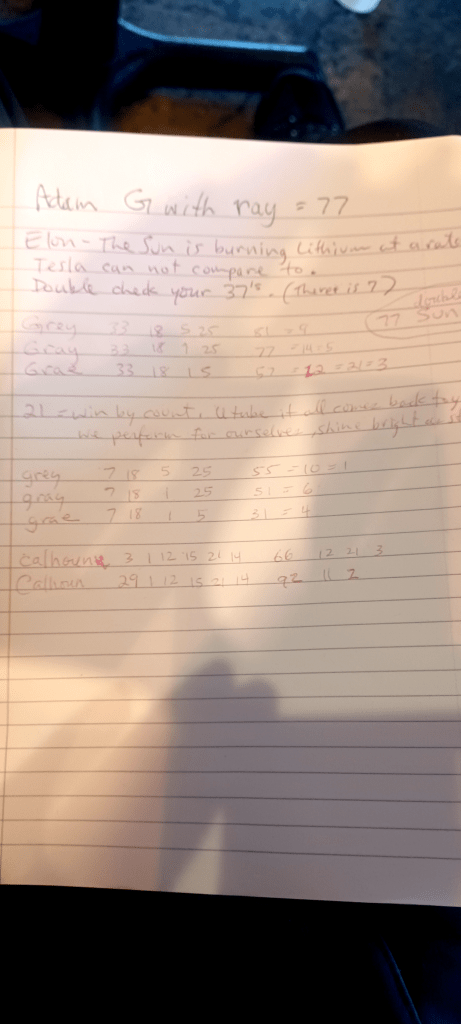 Adam G with ray = 77
Elon - The Sun is burning Lithium at a rate
Tesla can not compare to.
Double check your 37's. (Theret is ?)
double
77 Sun
Grey 33 18 5 25 81 = 9
Gray 33 18 1 25 77 = 14 = 5
Grae 33 18 1 5 57 = 12 = 21 = 3
21 = win by count, Utube it all comes back
we perform for ourselves, shine bright as
grey 7 18 5 25 55 = 10 = 1
gray 7 18 1 25 51 = 6
grae 7 18 1 5 31 = 4
calhoun 3 1 12 15 21 14 66 12 21 3
Calhoun 29 1 12 15 21 14 92 11 2